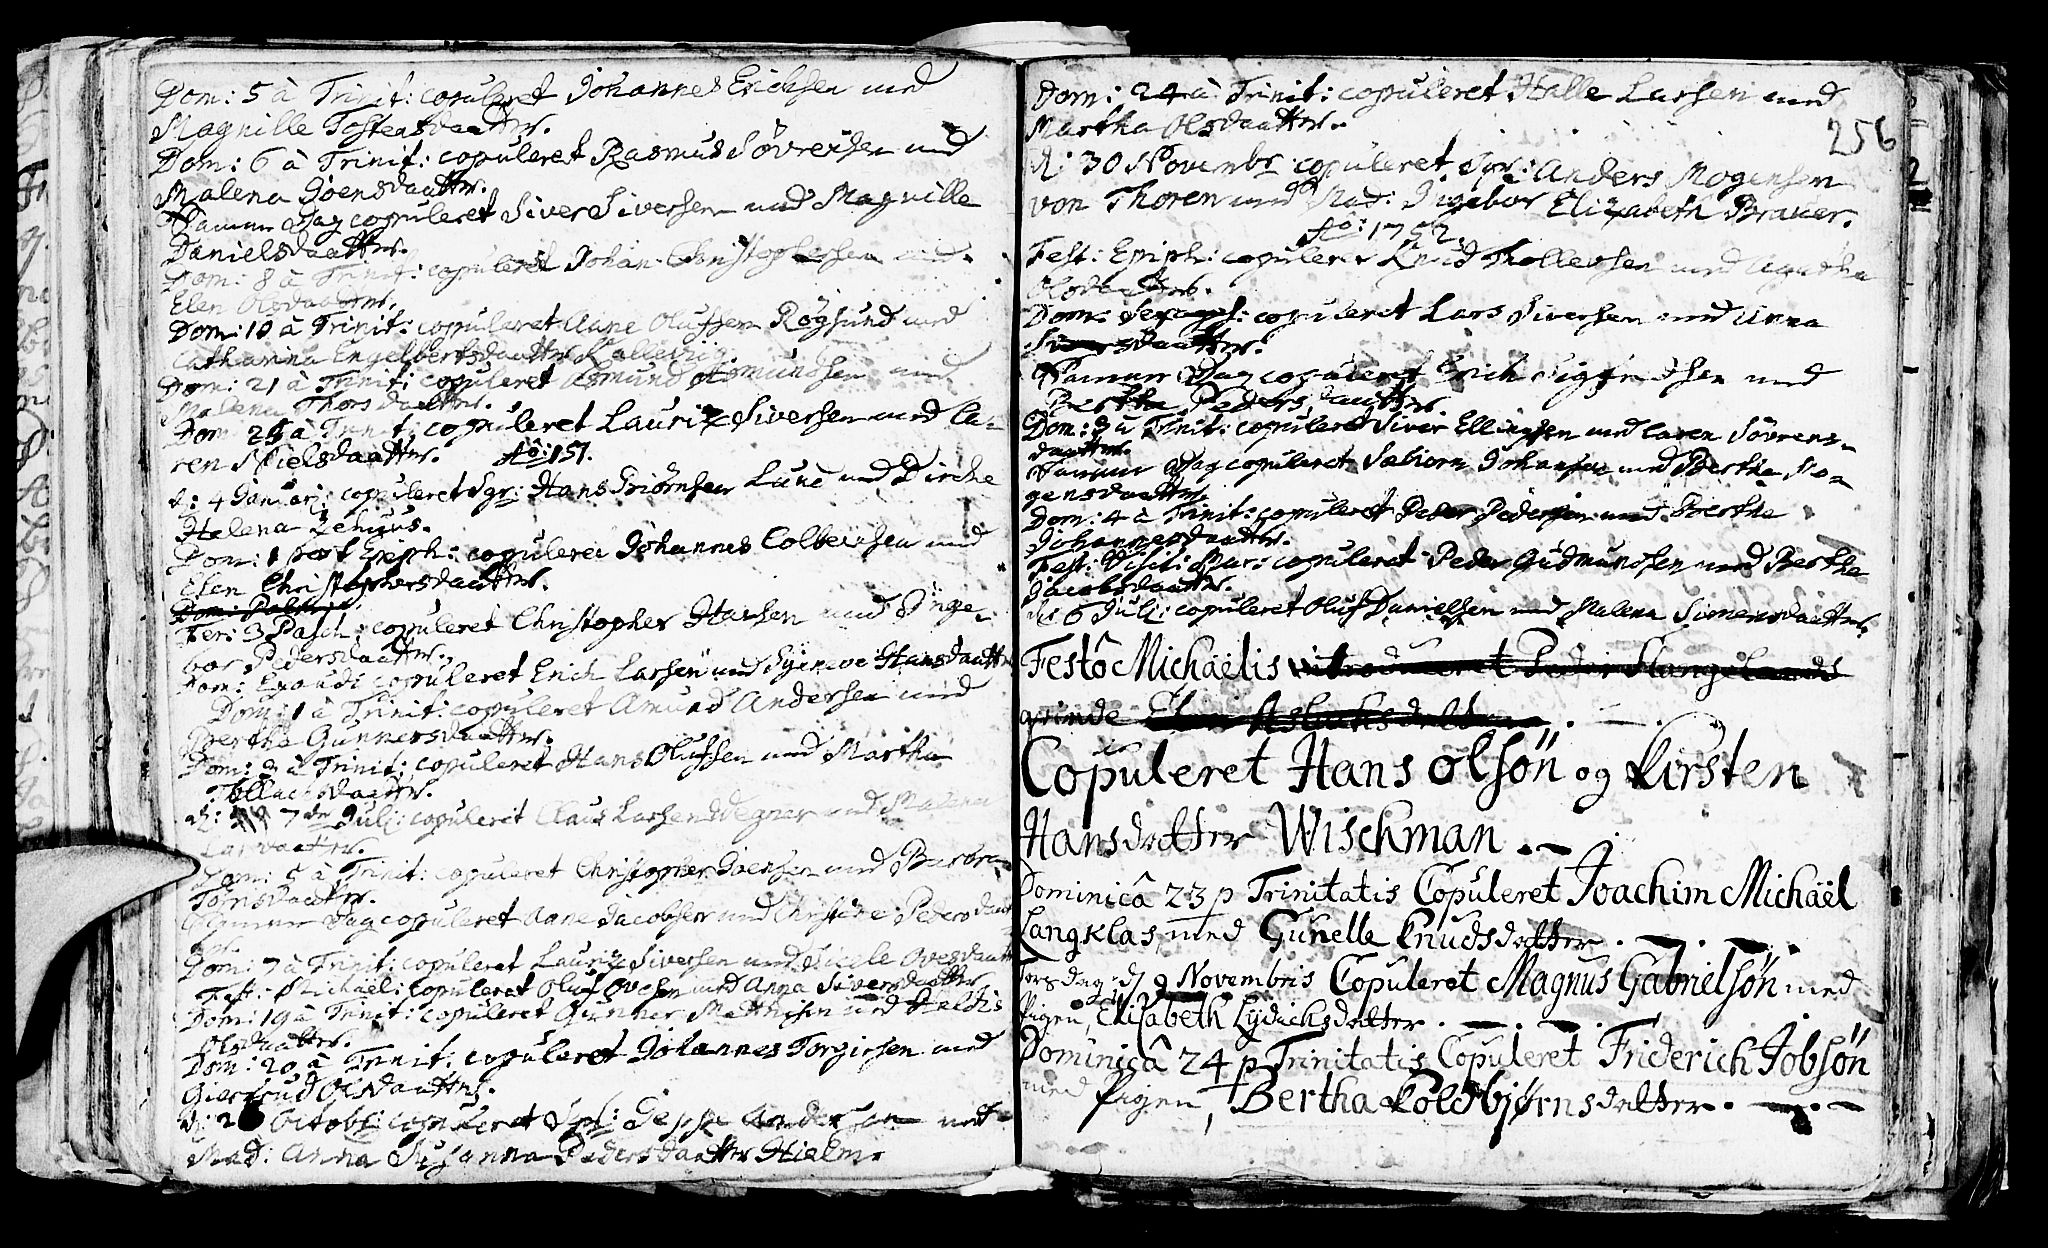 Dom: 5 à Trinit: copuleret Johannes Erichsen med
Magnille Tostensdaatter.
Dom: 6 à Trinit: copuleret Rasmus Søvrensen med
Malena Joensdaatter.
Samme Dag copuleret Siver Siversen med Magnille
Danielsdaatter.
Dom: 8 à Trinit: copuleret Johan Christophersen med
Elen Olsdaatter.
Dom: 10 à Trinit: copuleret Aane Olufsen Røgsund med
Catharina Engelbertsdaatter Kallevig.
Dom: 21 à Trinit: copuleret Asmund Asmundsen med
Malena Thorsdaatter.
Dom 24 à Trinit: copuleret Lauriz Siversen med Ca-
ren Nielsdaatter. Aô: 151.
d: 4 Januarj: copuleret Sgr: Hans Friørnsen Lund med Dirche
Helena
Dom: 1 post Epiph: copuleret Johannes Colbeinsen med
Elen Christophersdaatter.
Dom: Palm:
Fer: 3 Pasch: copuleret Christopher Hansen med Inge-
bor Pedersdaatter.
Dom: Exaudi copuleret Erich Larsen med Synneve Hansdaatter
Dom: 1 à Trinit: copuleret Amund Andersen med
Berthe Gunnersdaatter.
Dom: 2 à Trinit: copuleret Hans Olufsen med Martha
Tollachsdaatter.
d: 7de Julj: copuleret Claus Larsen Wegner med Malena
Larsdaatter.
Dom: 5 à Trinit: copuleret Christopher Joensen med Barbra
Tørnsdaatter.
Samme Dag copuleret Aane Jacobsen med Christine Pedersdaat-
ter.
Dom: 7 à Trinit: copuleret Lauriz Siversen med Sicele Ovesdaatter
Fest: Michael: copuleret Oluf Ovesen med Anna Siversdaatter
Dom: 19 à Trinit: copuleret Gunner Mathisen med Heldis
Olsdaatter.
Dom: 20 à Trinit: copuleret Johannes Torgiersen med
Giertrud Olsdaatter.
d: 26 Octobr: copuleret Sgl: Jeppe Anderson med
Mad: Anna Susanna Pedersdaatter Hielm.
Dom: 24 à Trinit: copuleret Halle Larsen med
Martha Olsdaatter.
256
d: 30 Novembr copuleret Sgr: Anders Mogensen
von Thoren med Mad: Ingebor Elizabeth Brauer.
Aô: 1752.
Fest: Epiph: copuleret Knud Thollevsen med Agatha
Olsdaatter.
Dom: Sexages: copuleret Lars Siversen med Anna
Siversdaatter.
Samme Dag copuleret Erich Sigfredsen med
Berthe Pedersdaatter.
Dom: 3 à Trinit: copuleret Siver Ellingsen med Caren Søvrens-
daatter.
Samme Dag copuleret Sebiorn Johansen med Berthe Mo-
gensdaatter.
Dom: 4 à Trinit: copuleret Peder Pedersen med Berthe
Johannesdaatter.
Fest: Visit: Mar: copuleret Peder Gudmundsen med Berthe
Jacobsdaatter.
d: 6 Julj: copuleret Oluf Danielsen med Malena Simensdaatter.
Festô Michaëlis introduceret Peder Stangelands
qvinde Elen Aslachsdatter.
Copuleret Hans Olsøn og Kirsten
Hansdatter Wischman.
Dominicâ 23 p Trinitatis Copuleret Joachim Michaël
Langklas, med Gunelle Knudsdatter.
Torsdag: d 9 Novembris Copuleret Magnus Gabrielsøn med
Pigen, Elisabeth Lydichsdatter.
Dominicâ 24 p Trinitatis Copuleret Friderich Jobsøn
med Pigen, Bertha Koldbjørnsdatter.